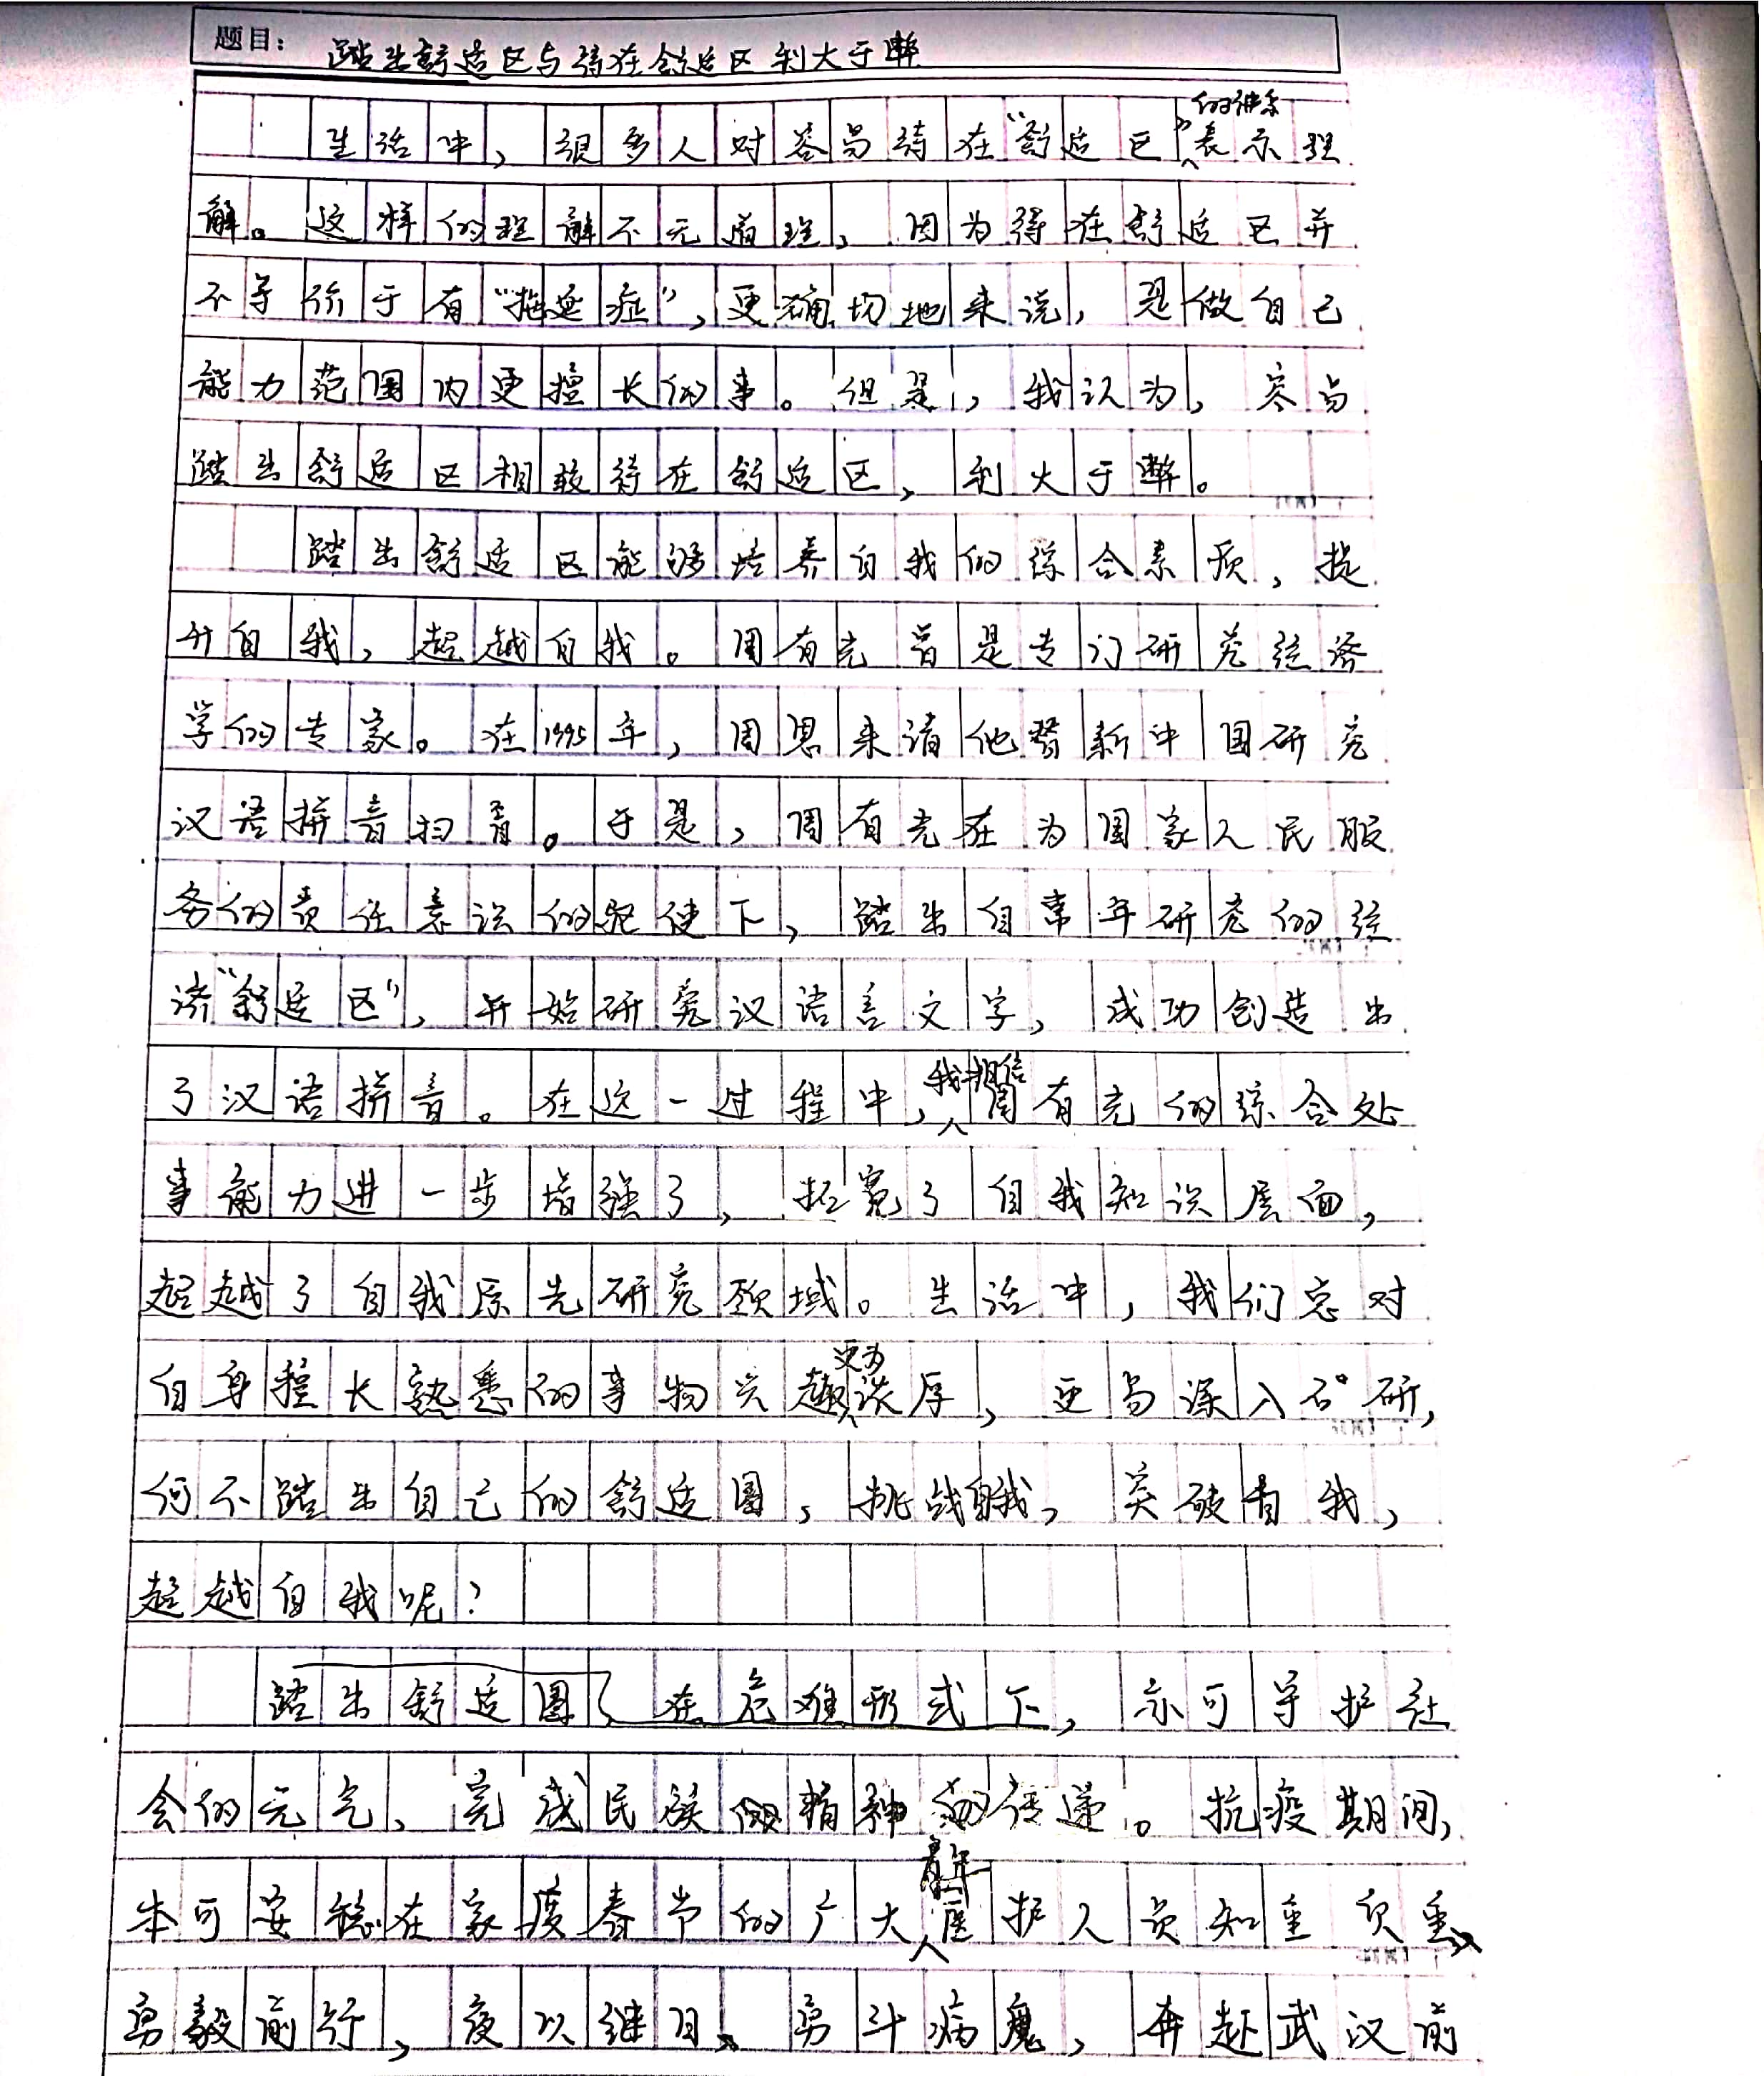 题目：踏出舒适区与待在舒适区利大于弊
生活中，很多人对容易待在“舒适区”的神态表示理
解。这样的理解不无道理，因为待在舒适区并
不等价于有“拖延症”，更确切地来说，是做自己
能力范围内更擅长的事。但是，我认为，容易
踏出舒适区相较待在舒适区，利大于弊。
踏出舒适区能够培养自我的综合素质，提
升自我，超越自我。周有光曾是专门研究经济
学的专家。在1995年，周恩来请他替新中国研究
汉语拼音扫盲。于是，周有光在为国家人民服
务的责任意识的驱使下，踏出自常年研究的经
济“舒适区”，开始研究汉语言文字，成功创造出
了汉语拼音。在这一过程中，我相信周有光的综合处
事能力进一步增强了，拓宽了自我知识层面，
超越了自我原先研究领域。生活中，我们总对
自身擅长熟悉的事物兴趣更为浓厚，更易深入研，
何不踏出自己的舒适圈，挑战自我，突破自我，
超越自我呢？
踏出舒适圈，在危难形式下，亦可守护社
会的元气、完成民族精神的传递。抗疫期间，
本可安稳在家度春节的广大青年医护人员知重负重、
勇毅前行，夜以继日、勇斗病魔，奔赴武汉前